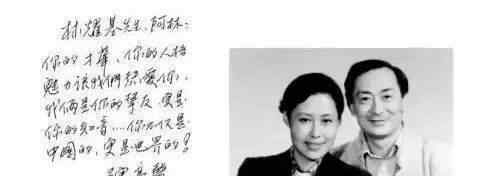 林耀基先生、阿林：
你的才華、你的人格
魅力讓我們熱愛你，
我倆是你的摯友，更是
你的知音…你不仅是
中國的，更是世界的！